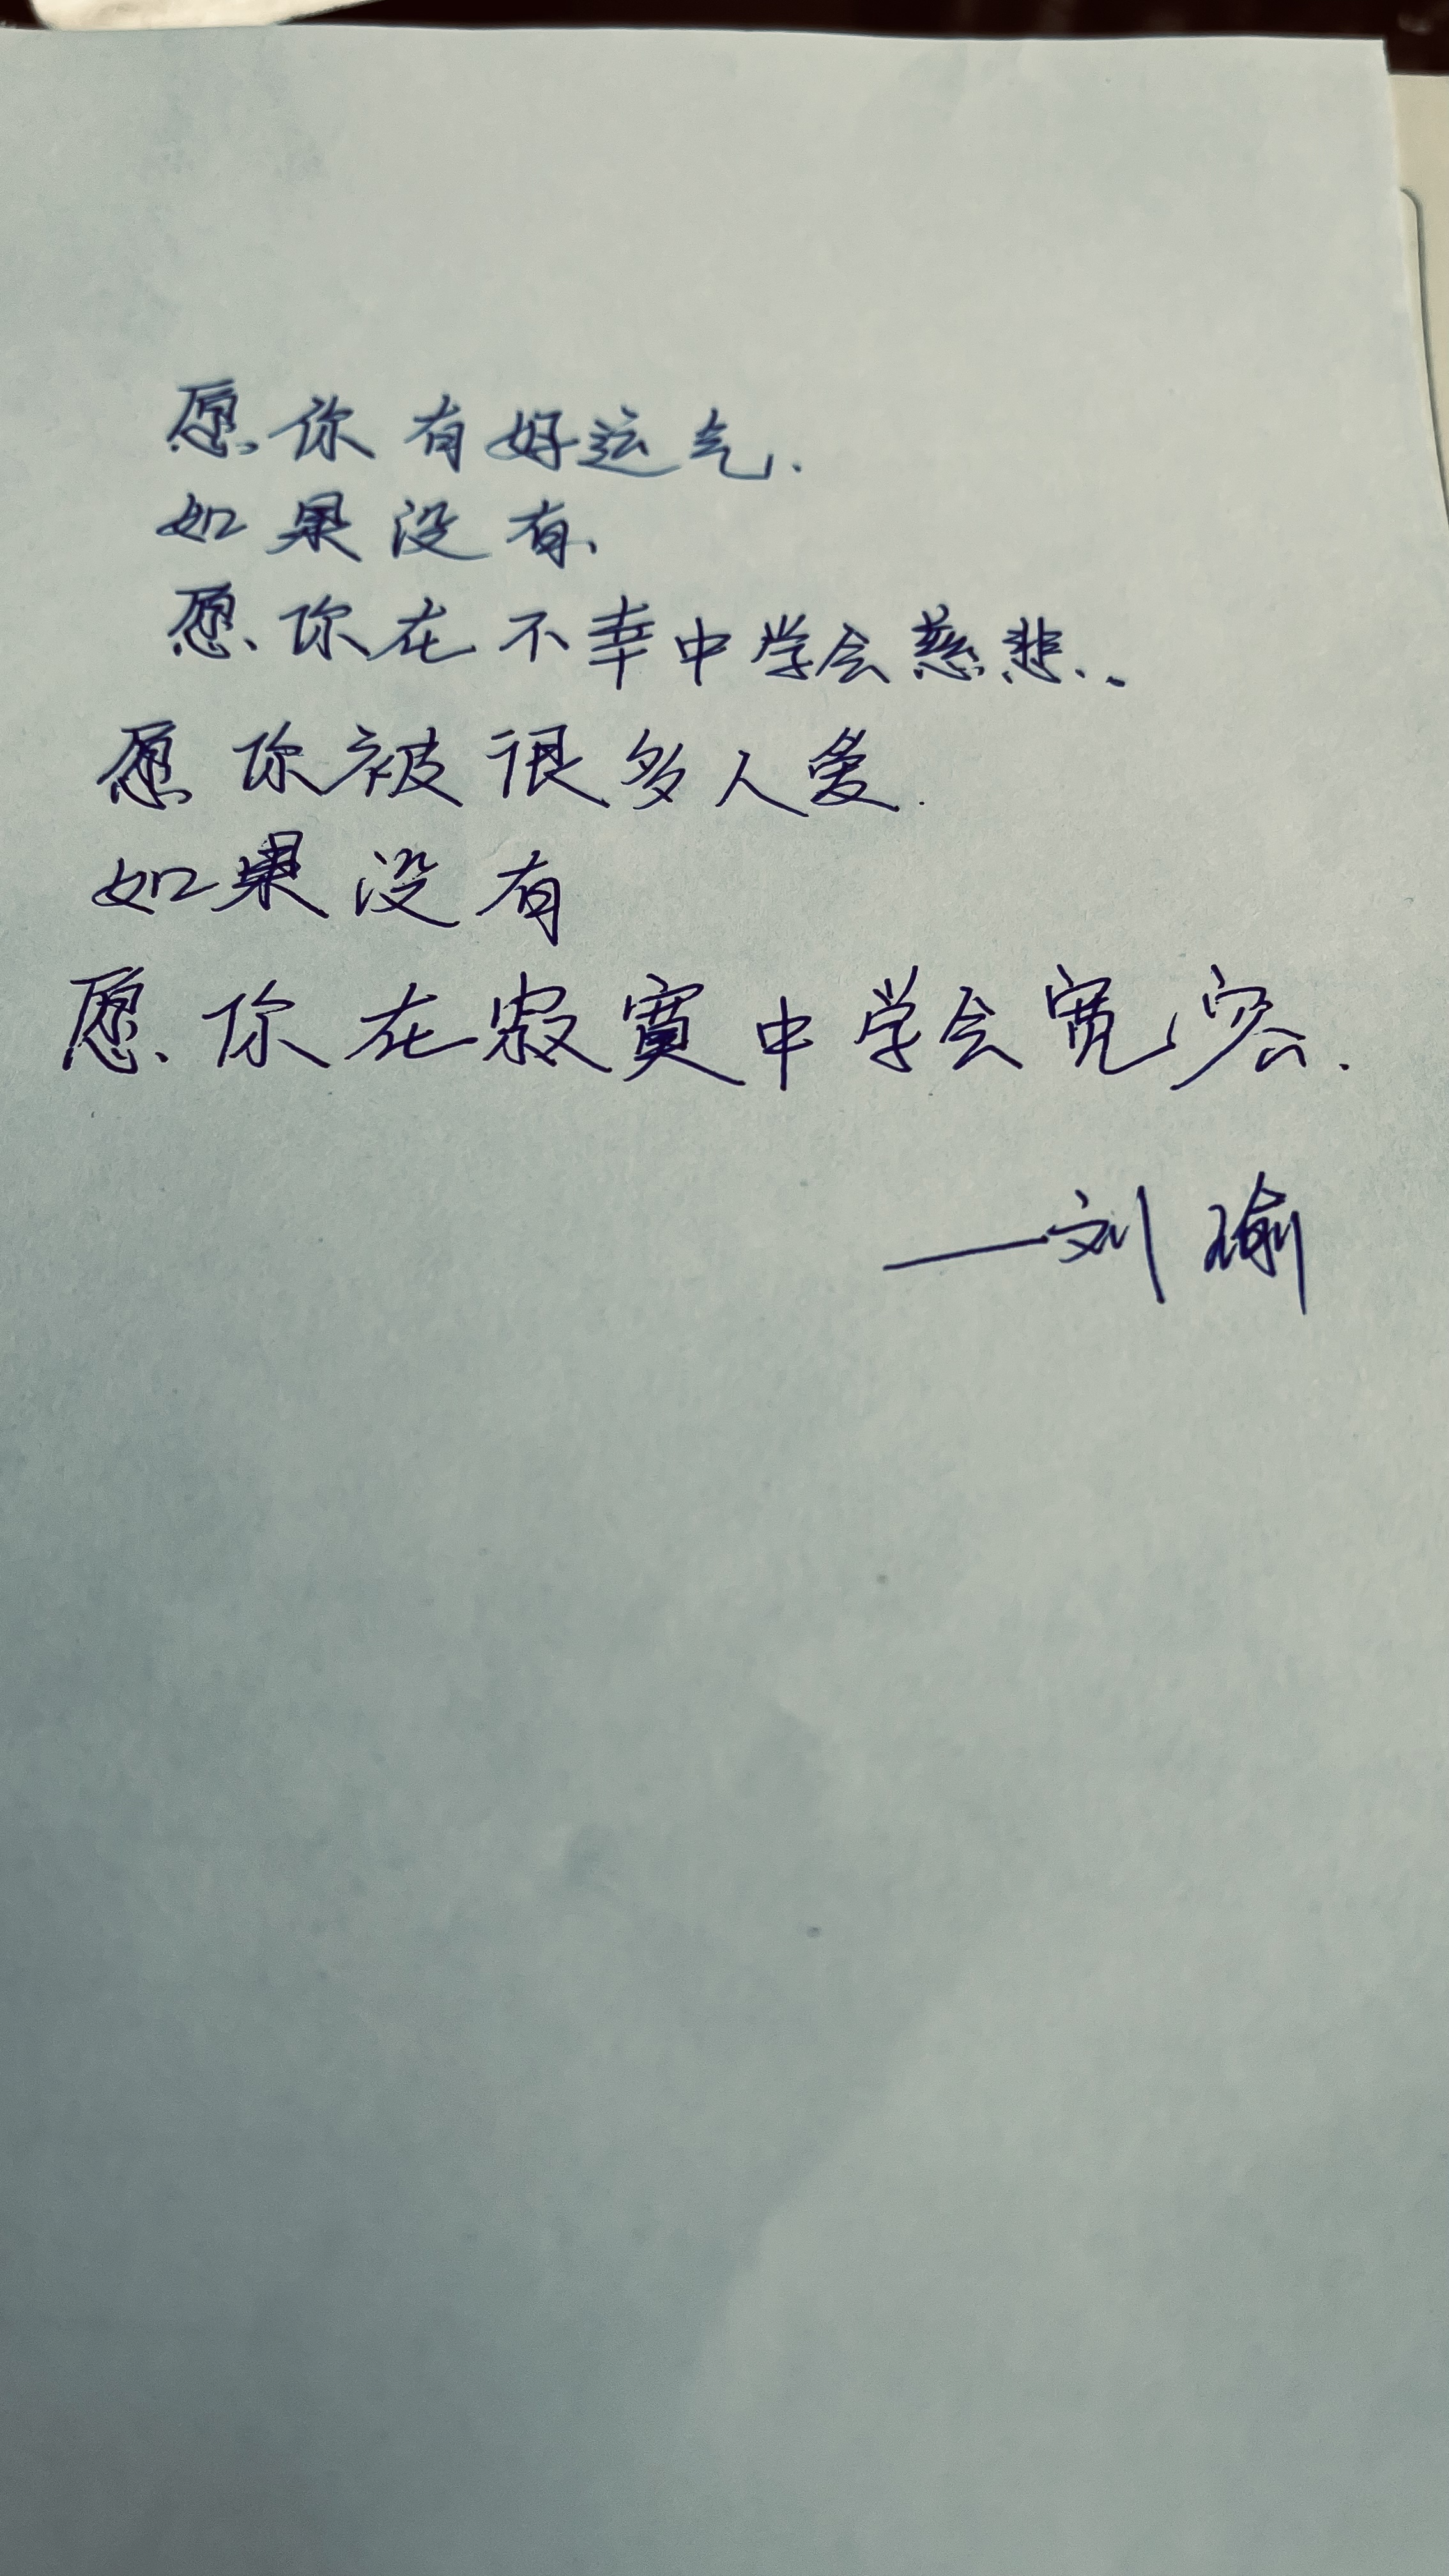 愿你有好运气.
如果没有、
愿你在不幸中学会慈悲..
愿你被很多人爱.
如果没有
愿你在寂寞中学会宽容.
——刘瑜